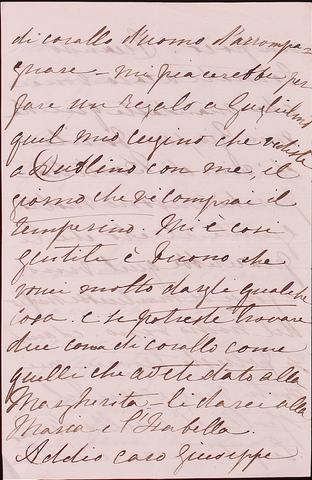 di corallo d'uomo d'accompa=
gnare – mi piacerebbe per
fare un regalo a Guglielmo
quel mio cugino che vediste
a Dublino con me, il
giorno che vi comprai il
temperino. Mi è così
gentile è buono che
vorrei molto dargli qualche
cosa. e se potreste trovare
due di corallo come
quelli che avete dato alla
Margherita – li darei alla
Maria e l'Isabella.
Addio caro Giuseppe